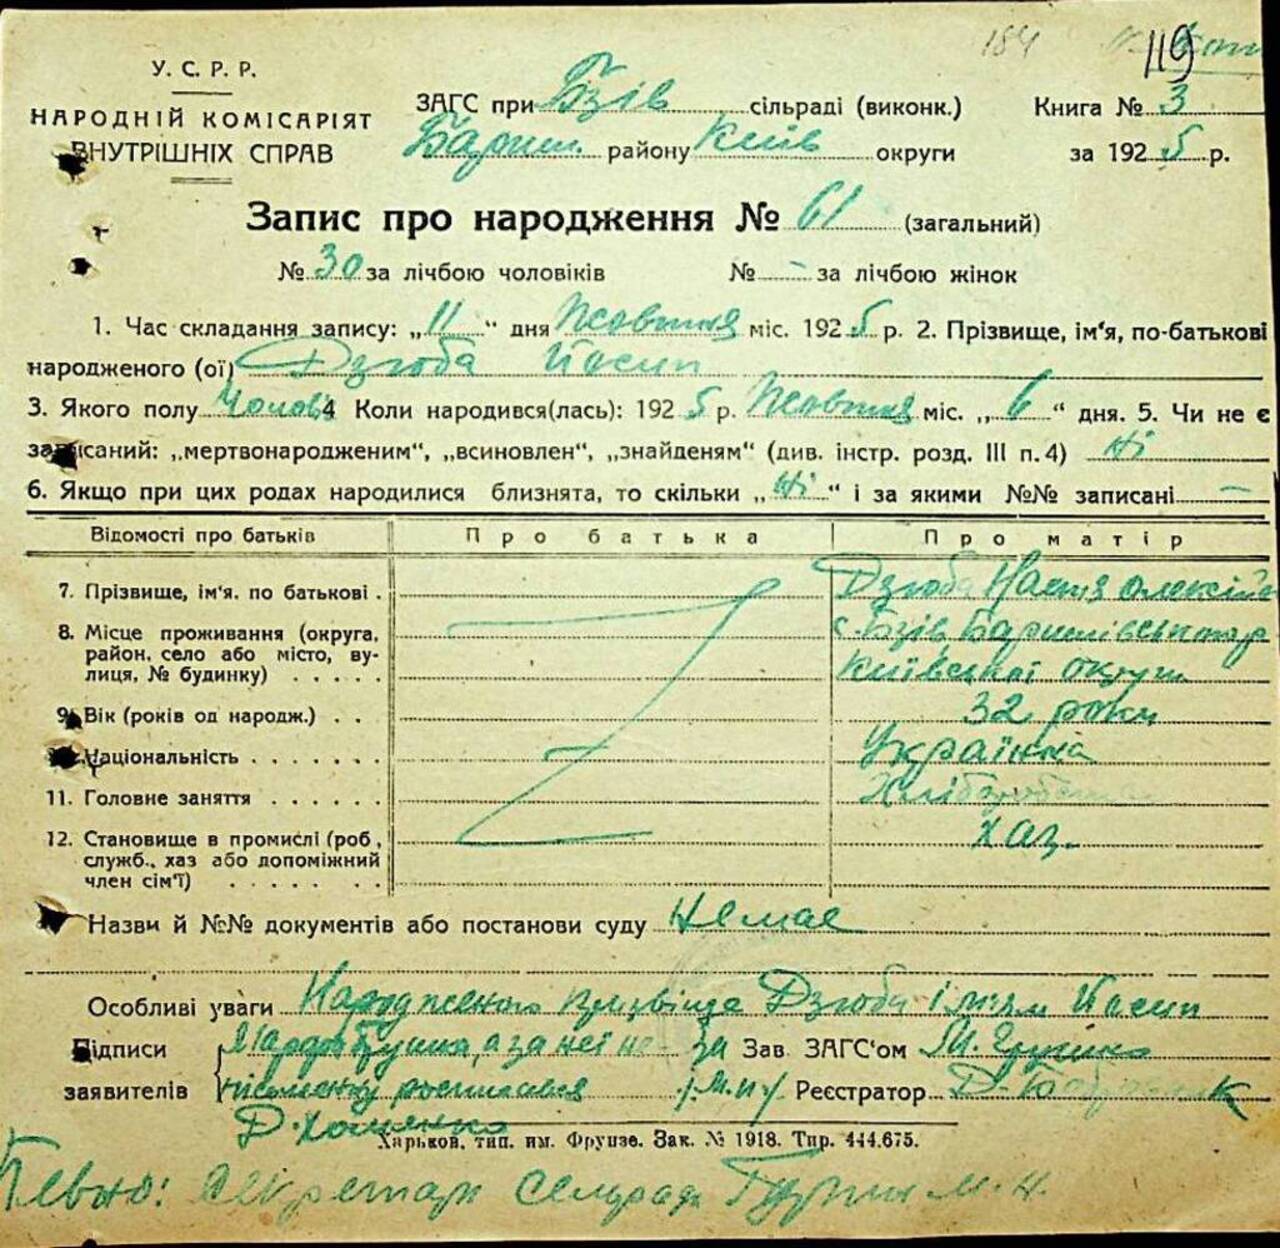 184 119
У. С. Р. Р.
НАРОДНІЙ КОМІСАРІЯТ
ВНУТРІШНІХ СПРАВ
ЗАГС при Бзів сільраді (виконк.) Книга № 3
Бариш. району Київ округи за 1925 р.
Запис про народження № 61 (загальний)
№ 30 за лічбою чоловіків № - за лічбою жінок
1. Час складання запису: „11“ дня Жовтня міс. 1925 р. 2. Прізвище, ім‘я, по-батькові
народженого (ої) Дзюба Йосип
3. Якого полу Чолов. 4 Коли народився(лась): 1925 р. Жовтня міс. „6“ дня. 5. Чи не є
записаний: „мертвонародженим“, „всиновлен“, „знайденям“ (див. інстр. розд. III п. 4) Ні
6. Якщо при цих родах народилися близнята, то скільки „Ні“ і за якими №№ записані —
Відомості про батьків Про батька Про матір
7. Прізвище, ім‘я. по батькові . Дзюба Настя Олексій
8. Місце проживання (округа, район, село або місто, вулиця, № будинку) . . . . . с. Бзів Баришівськ
Київської округи
9. Вік (років од народж.) . . 32 роки
10. Національність . . . . . . . Українка
11. Головне заняття . . . . . . Хлібороб
12. Становище в промислі (роб, служб., хаз або допоміжний член сім‘ї) . . . . . . хаз.
Назви й №№ документів або постанови суду Немає
Особливі уваги Народженого прізвище Дзюба імям Йосип
Підписи заявителів
а за неї не
письменну росписався
Д. Хоменко
За Зав. ЗАГС‘ом М.
/М.П/ Реєстратор Д.
Харьков, тип. им. Фрунзе. Зак. № 1918. Тир. 444.675.
Певно: Секретар Сельради М. Н.